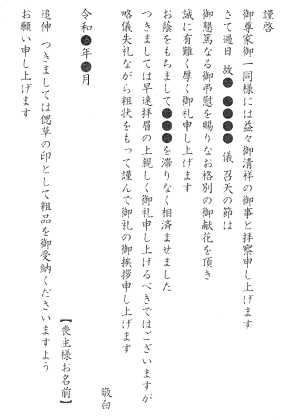 謹啓
御尊家御一同様には益々御清祥の御事と拝察申し上げます
さて過日 故 ● ●●●● 儀 召天の節は
御懇篤なる御弔慰を賜りなお格別の御献花を頂き
誠に有難く厚く御礼申し上げます
お陰をもちまして●●●●を滞りなく相済ませました
つきましては早速拝眉の上親しく御礼申し上げるべきではございますが
略儀失礼ながら粗状をもって謹んで御礼の御挨拶申し上げます
敬白
令和●年●月
【喪主様お名前】
追伸 つきましては偲草の印として粗品を御受納くださいますよう
お願い申し上げます